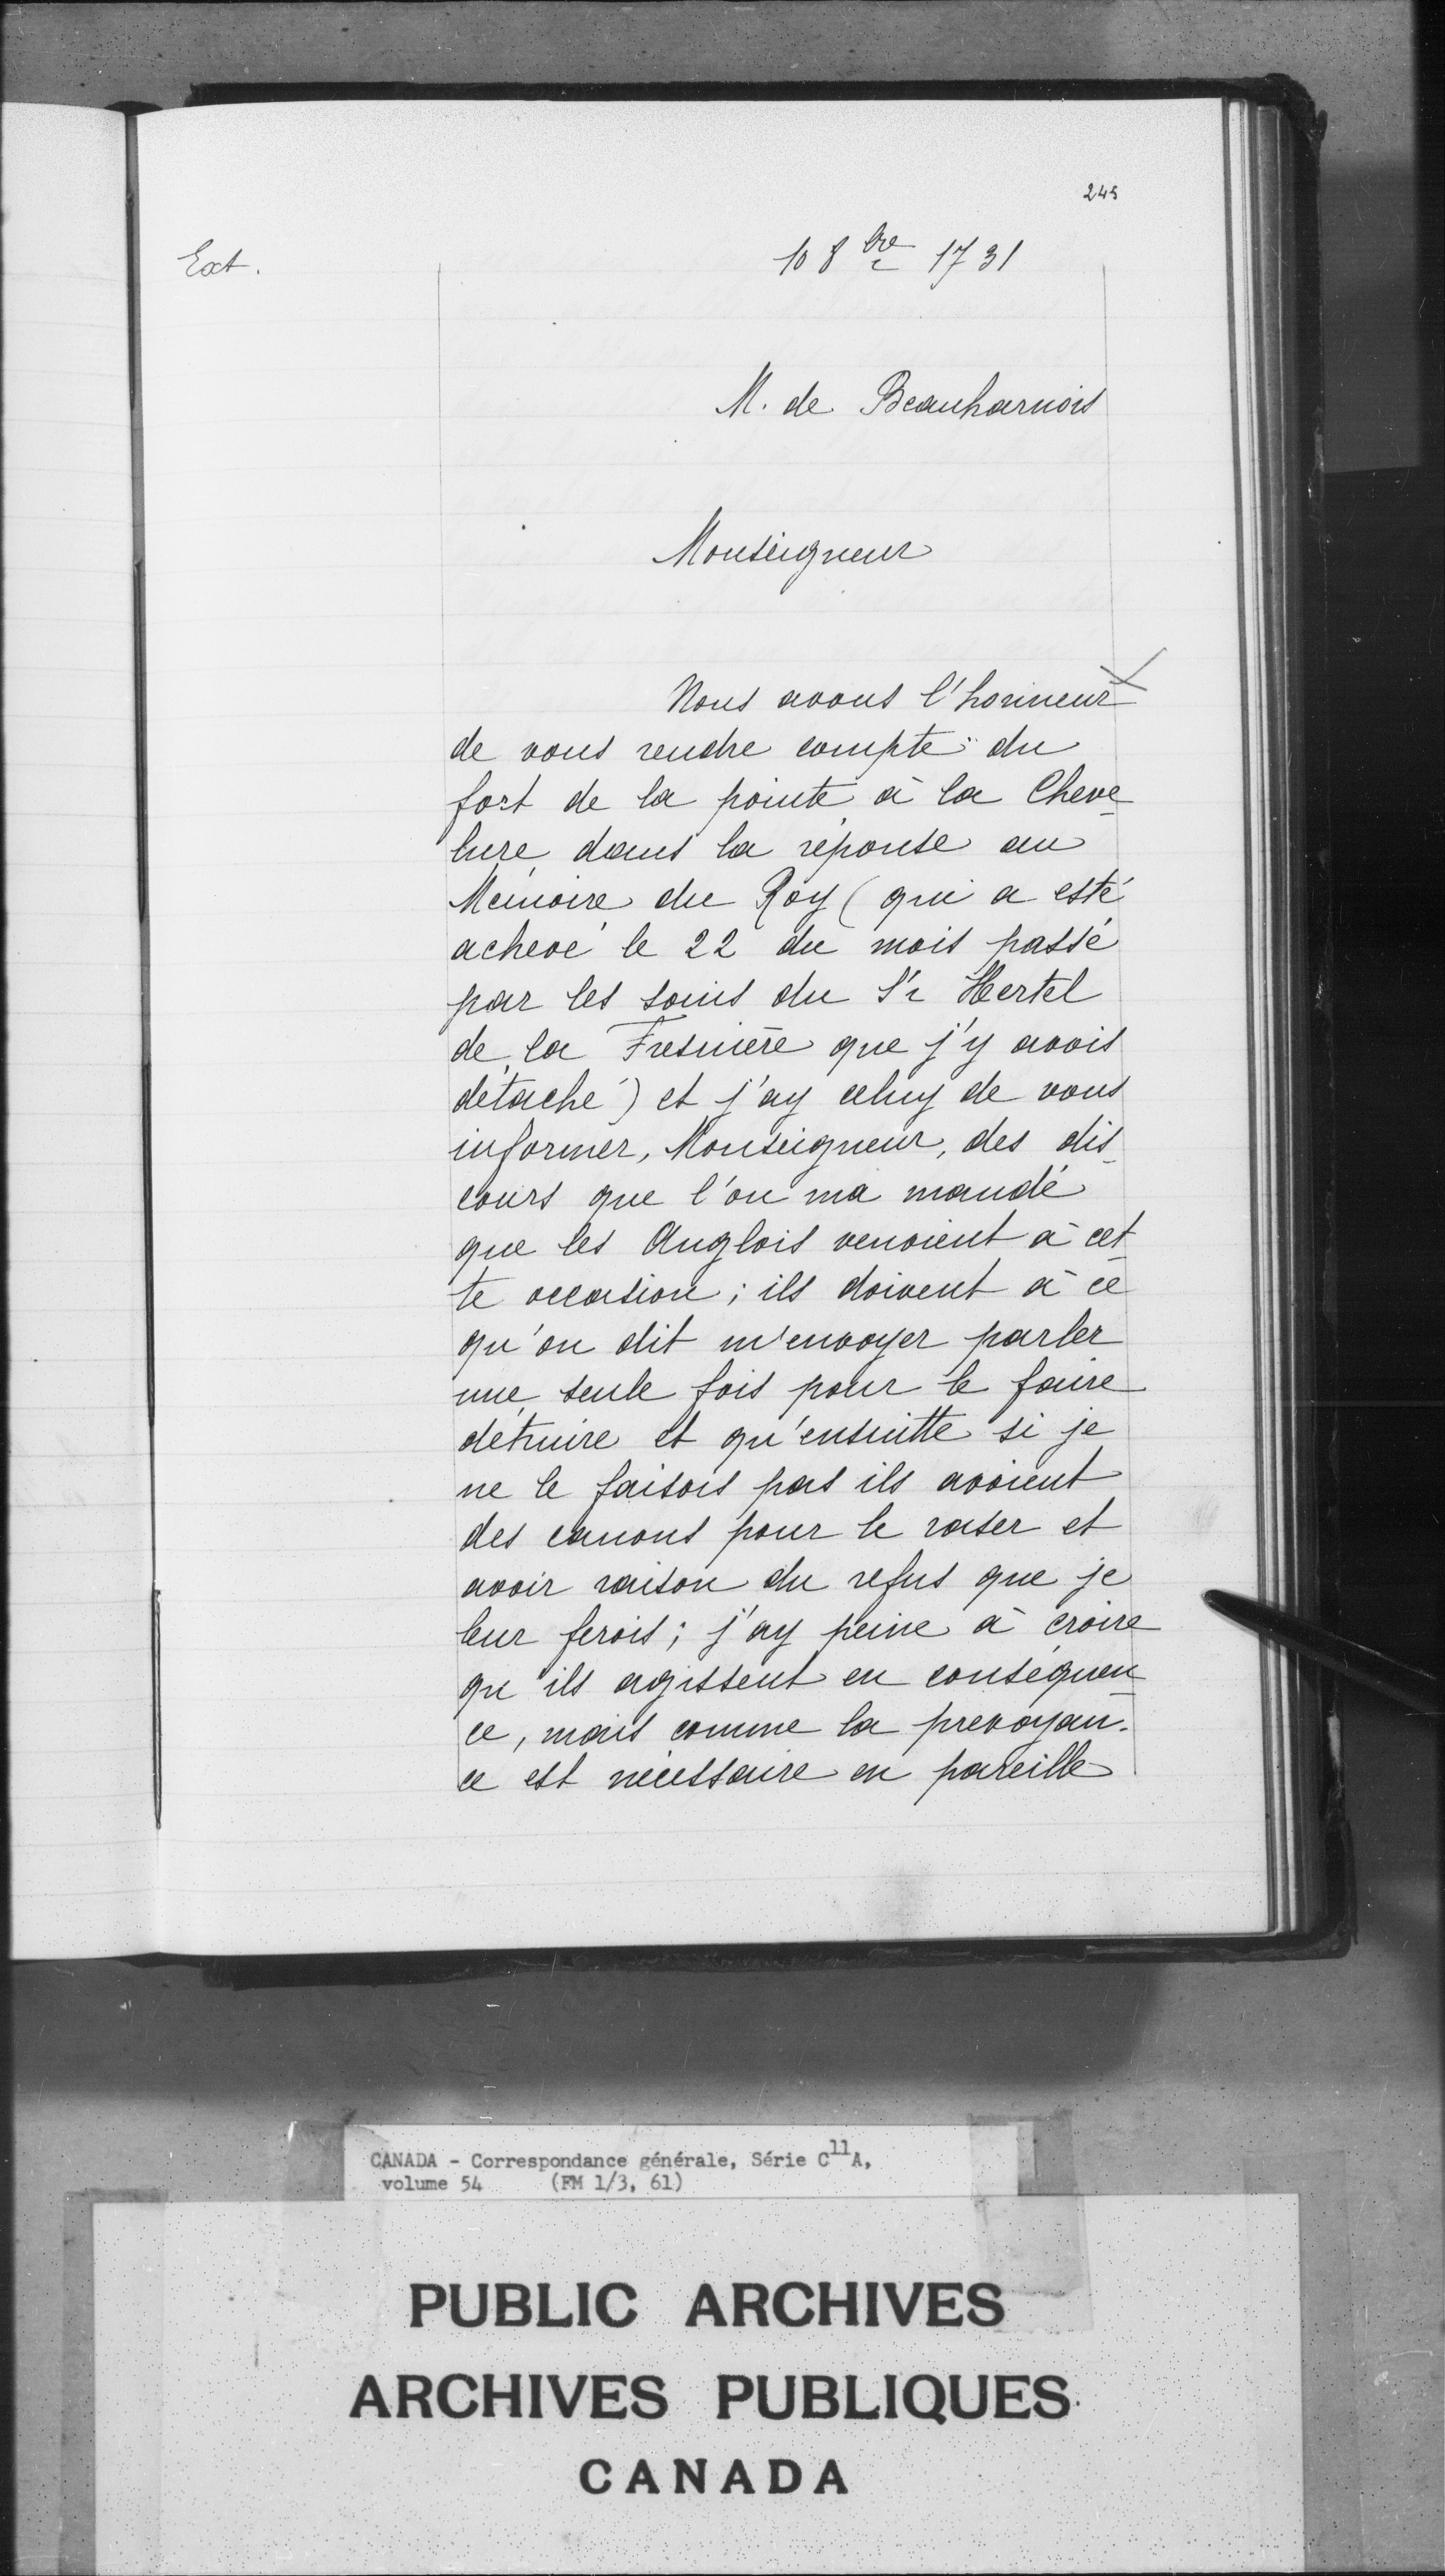 245
Ext.
10 8bre 1731
M. de Beauharnois
Monseigneur
Nous avons l'honneur
de vous rendre compte du
fort de la pointe à la Cheve-
lure dans la réponse au
Mémoire du Roy (qui a esté
achevé le 22 du mois passé
par les soins du Sr Hertel
de la Fresnière que j'y avois
détaché) et j'ay celuy de vous
informer, Monseigneur, des dis-
cours que l'on ma mandé
que les Anglois tenoient à cet-
te occasion; ils doivent à ce
qu'on dit m'envoyer parler
une seule fois pour le faire
détruire et qu'ensuitte si je
ne le faisois pas ils avoient
des canons pour le raser et
avoir raison du refus que je
leur ferois; j'ay peine à croire
qu'ils agissent en conséquen-
ce, mais comme la prevoyan-
ce est nécessaire en pareille
CANADA - Correspondance générale, Série C11A,
volume 54 (FM 1/3, 61)
PUBLIC ARCHIVES
ARCHIVES PUBLIQUES
CANADA